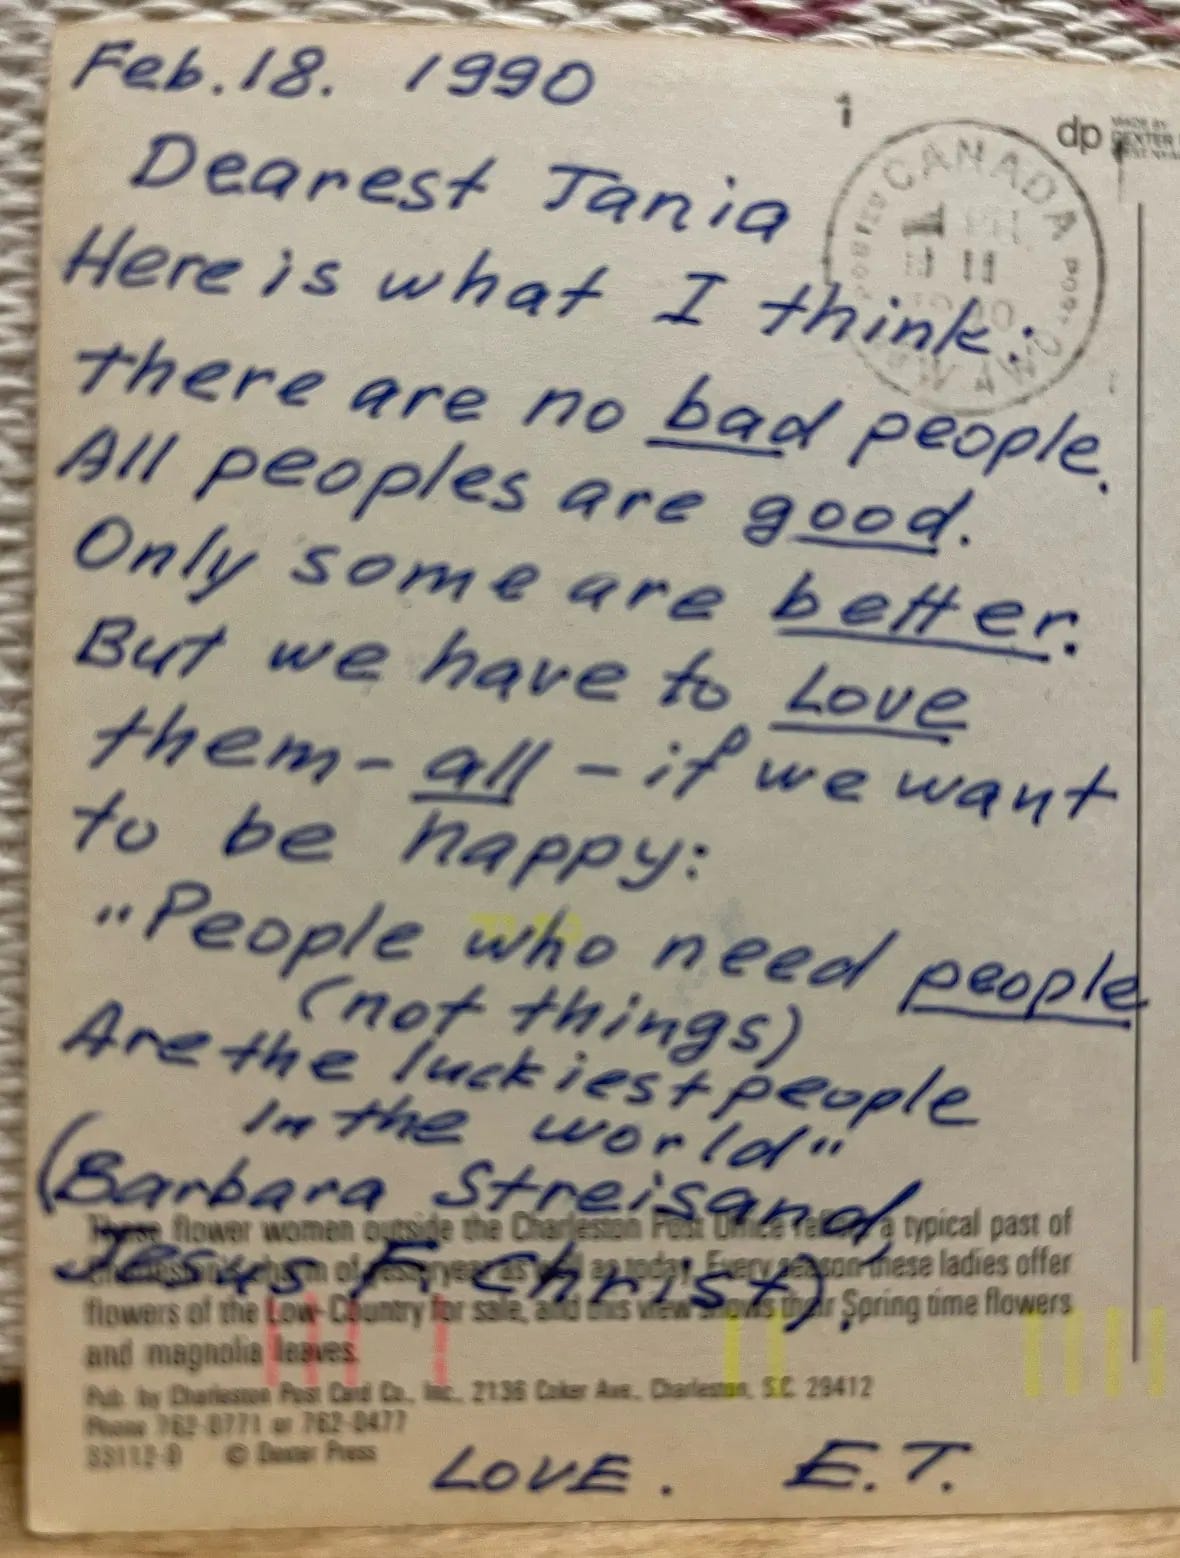 Feb. 18. 1990
1
dp MADE BY
DEXTER
CANADA
Dearest Tania
Here is what I think:
there are no bad people.
All peoples are good.
Only some are better.
But we have to Love
them - all - if we want
to be happy:
"People who need people
(not things)
Are the luckiest people
In the world"
(Barbara Streisand,
Jesus F. Christ).
These flower women outside the Charleston Post Office reflect a typical past of
charm of yesteryear as well as today. Every season these ladies offer
flowers of the Low-Country for sale, and this view shows their Spring time flowers
and magnolia leaves.
Pub. by Charleston Post Card Co., Inc., 2136 Coker Ave., Charleston, S.C. 29412
Phone 762-0771 or 762-0477
33112-D © Dexter Press
LOVE. E.T.